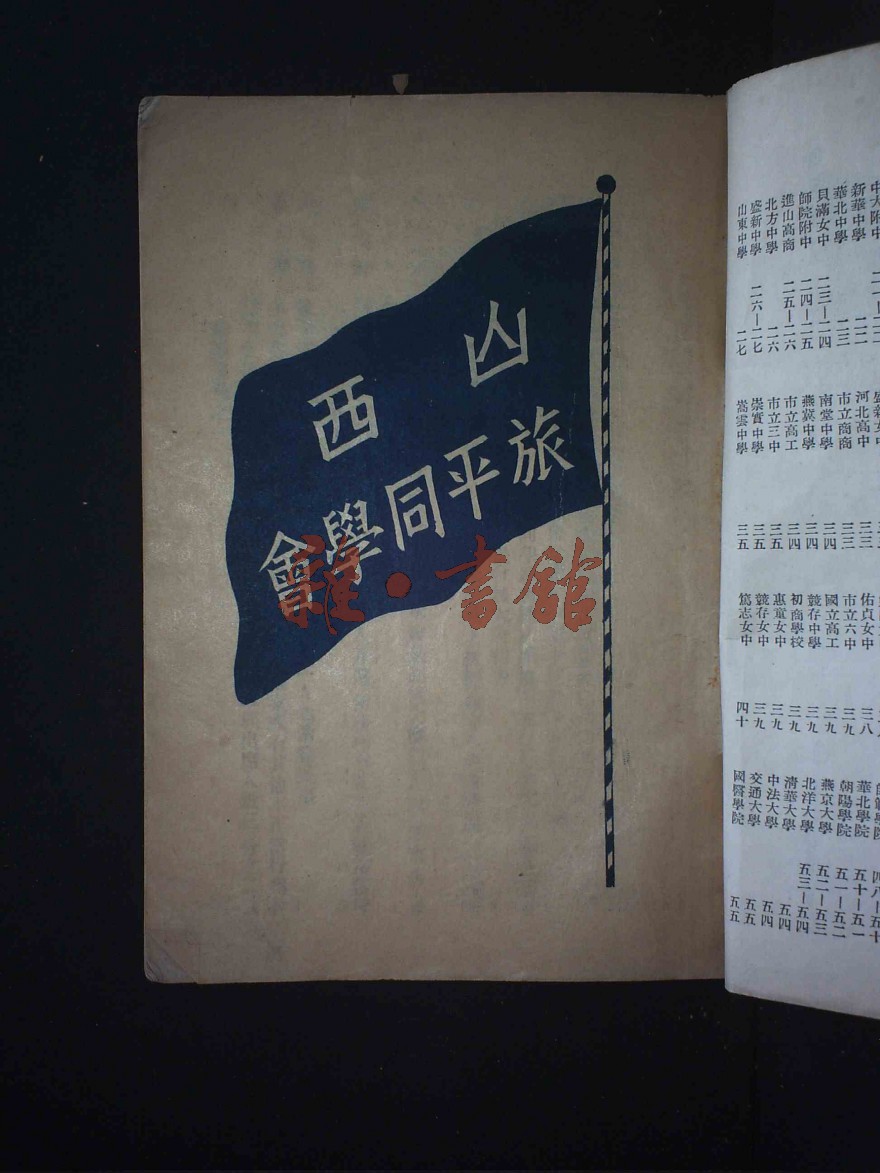 山西
旅平同學會
書館
中大附中
新華中學 二二
華北中學 二三
貝滿女中 二三—二四
師院附中 二四—二五
進山高商 二五—二六
北方中學 二六
盛新中學 二六—二七
山東中學 二七
盛新女中
河北高中 三三
市立商商 三三
南堂中學 三四
燕冀中學 三四
市立高工 三四
市立三中 三五
崇實中學 三五
嵩雲中學 三五
佑貞女中 三八
市立六中 三九
國立高工 三九
競存中學 三九
初商學校 三九
惠童女中 三九
競存女中 三九
篤志女中 四十
師範學院 四八—五十
華北學院 五十—五一
朝陽學院 五一—五二
燕京大學 五二—五三
北洋大學 五三—五四
清華大學 五四
中法大學 五四
交通大學 五五
國醫學院 五五